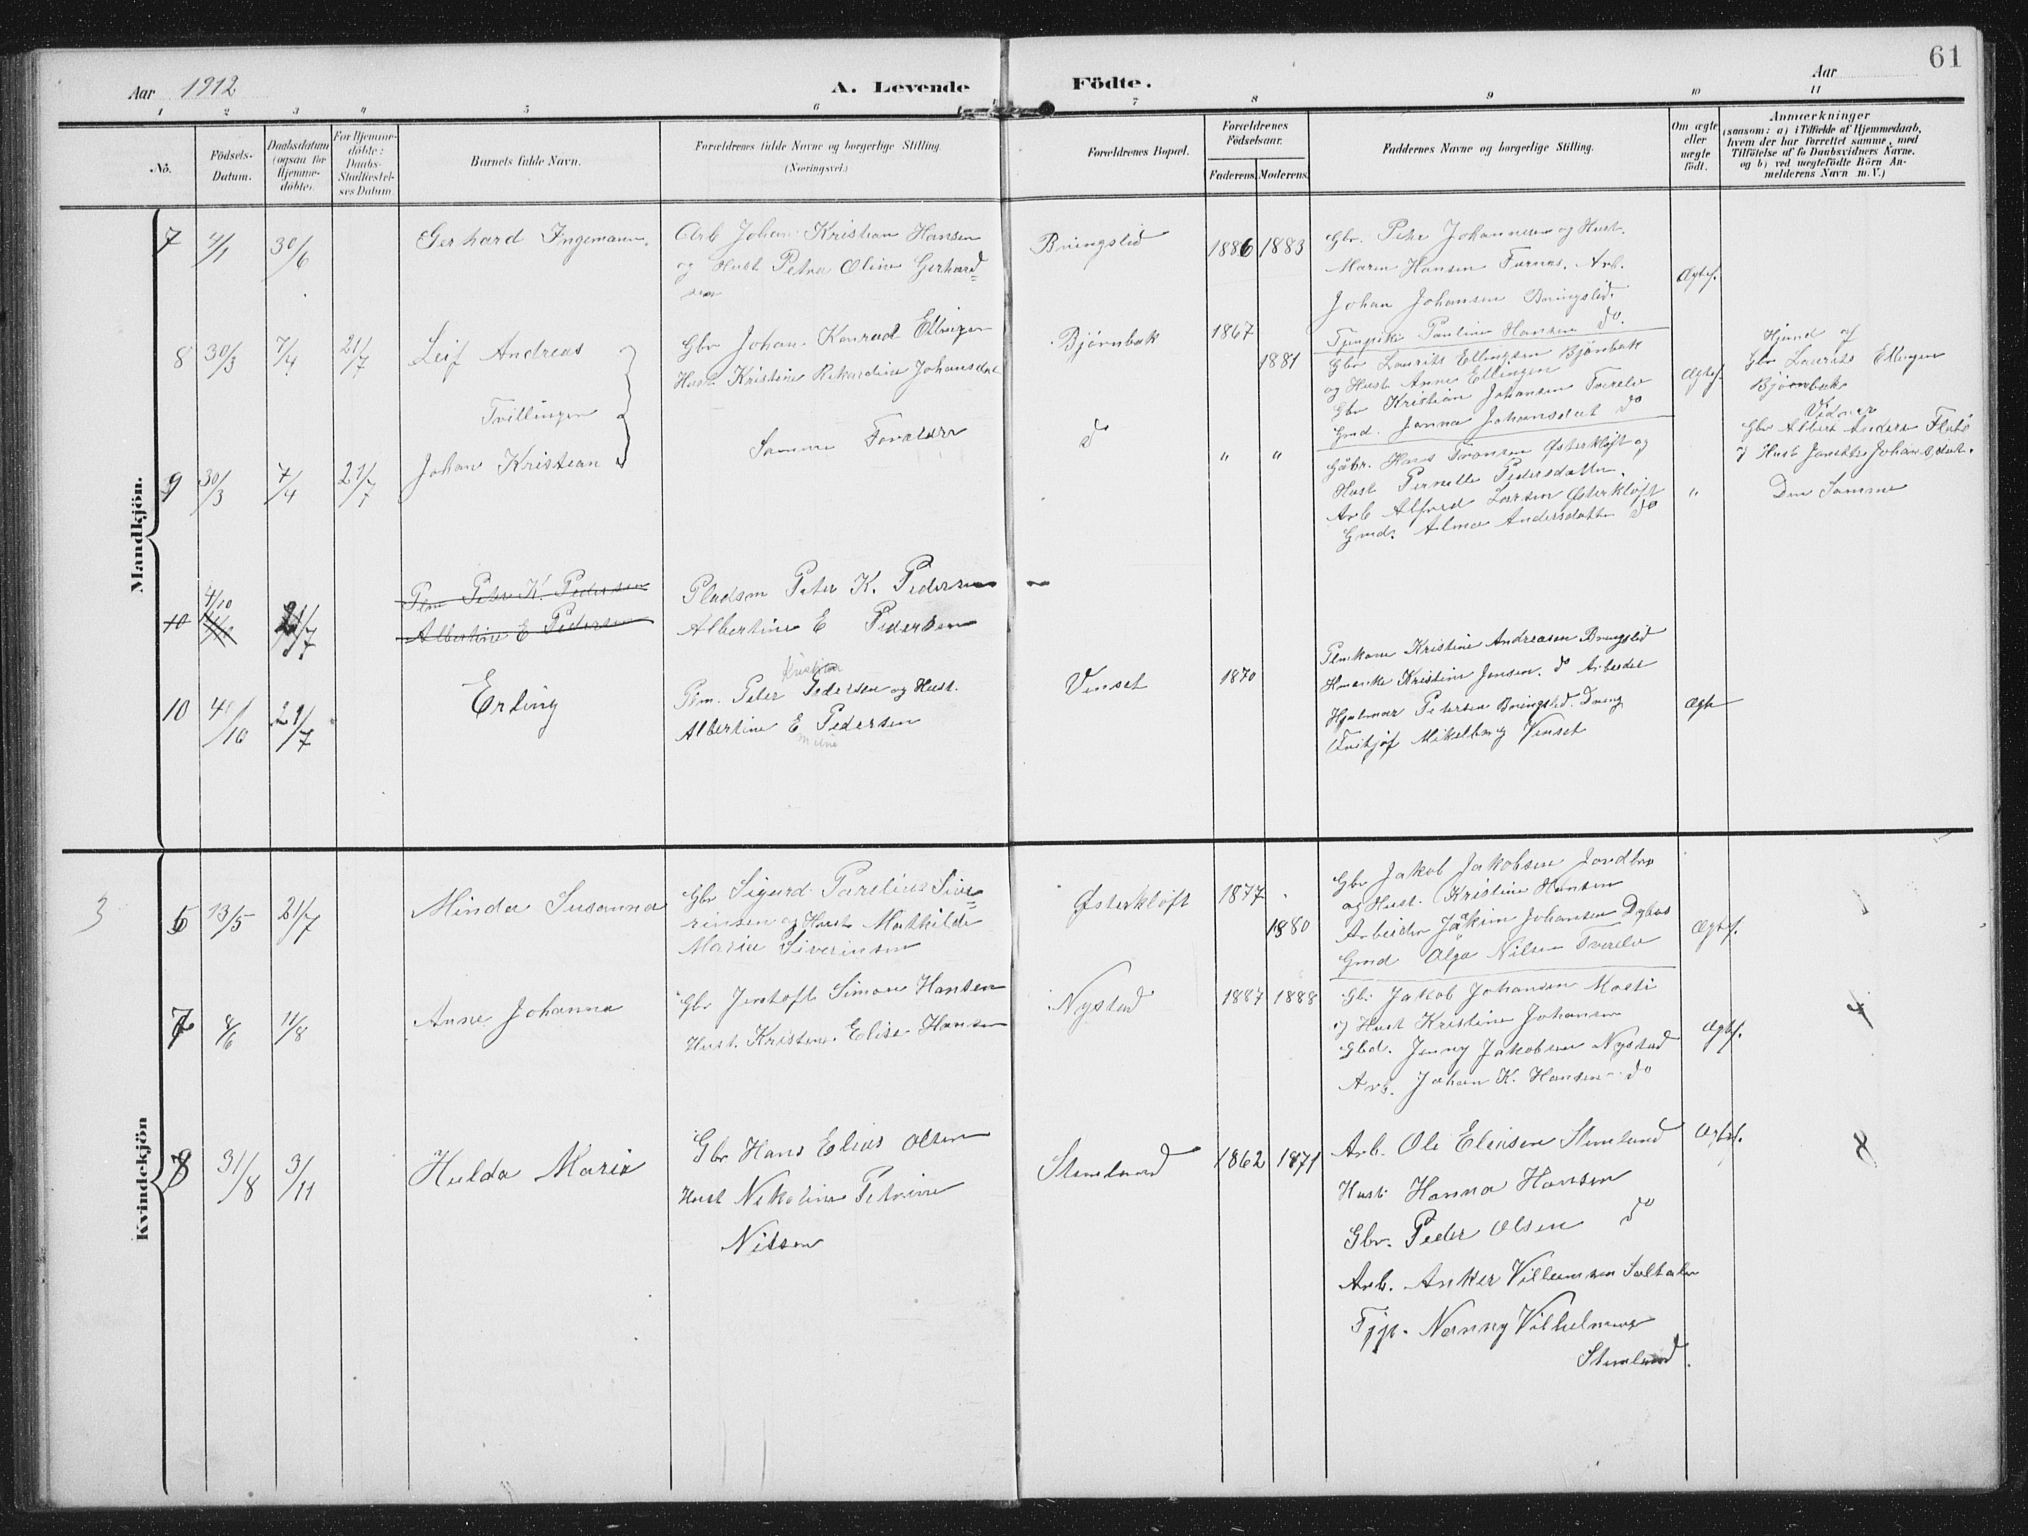 61
Aar 1912
A. Levende Födte.
Aar
1 2 3 4 5 6 7 8 9 10 11
No.
Födsels-
Datum.
Daabsdatum
(ogsaa for
Hjemme-
döbte).
For Hjemme-
döbte:
Daabs-
Stadfæstel-
ses Datum
Barnets fulde Navn.
Forældrenes fulde Navne og borgerlige Stilling
(Næringsvei.)
Forældrenes Bopæl.
Forældrenes
Födselsaar.
Faderens. Moderens.
Faddernes Navne og borgerlige Stilling.
Om ægte
eller
uægte
födt.
Anmærkninger
(saasom: a) i Tilfælde af Hjemmedaab,
hvem der har forrettet samme, med
Tilföielse af to Daabsvidners Navne.
og b) ved uægtefödte Börn An-
melderens Navn m. V.)
Mandkjön.
7 4/1 30/6 Gerhard Ingemann.
Arb Johan Kristian Hansen
og Hust Petra Oline Gerhard=
sen
Bringslid 1886 1883
Gbr. Peter Johannesen og Hust.
Maren Hansen Furnes. Arb.
Johan Johansen Bringslid.
Tjpigeke Pauline Hansen do.
Ægtef.
8 30/3 7/4 21/7 Leif Andreas
Gbr Johan Konrad Ellingsen
Hust Kristine Rikardine Johansdat
Bjørnbak 1867 1881
Gbr Laurits Ellingsen Bjönbak
og Hust Anne Ellingsen
Gbr Kristian Johansen Tverelv
Gmd. Janna Johansdat do
Ægtef.
Hjmd af
Gbr Laurits Ellingsen
Bjørnbak
Vidner
Gbr Albert Anders
og Hust Johansdat.
Tvillinger
9 30/3 7/4 21/7 Johan Kristian
Samme Forældre
do " "
Gåbr. Hans Tronsen Østerkløft og
Hust Pernelle Pedersdatter.
Arb Alfred Larsen Østerkløft
Gmd. Alma Andersdatter do
" Den Samme
10 4/10 21/7 Plm Peter K. Pedersen
Albertine E Pedersen
Pladsm Peter K. Pedersen —
Albertine E Pedersen
10 4/10 21/7 Erling
Kristian
Plm. Peter Pedersen og Hust.
Albertine E Pedersen
Venset 1870
Plmkone Kristine Andreasen Bringslid
Kristine Jensen. do Arbeider
Hjalmar Petersen Bringslid. Dreng
Fritjof Mikelborg Venset
Ægte
Kvindekjön
3
6 13/5 21/7 Minda Susanna
Gbr Sigurd Parelius Sive=
rinsen og Hust Mathilde
Marie Siverinsen
Østerkløft 1877 1880
Gbr Jakob Jakobsen Jordbro
og Hust. Kristine Hansen
Arbeider Joakim Johansen
Gmd Olga Nilsen Tverelv
Ægtef.
7 8/6 11/8 Anne Johanna
Gbr Jentoft Simon Hansen
Hust. Kristine Elise Hansen
Nystad 1887 1888
Gbr Jakob Johansen
og Hust Kristine Johansen
Gbd. Jenny Jakobsen Nystad
Arb. Johan K. Hansen do
Ægtef.
8 31/8 3/11 Hulda Maria
Gbr Hans Elias Olsen
Hust Nikoline Petrine
Nilsen
Stemland 1862 1871
Arb. Ole Eliasen Stemland
Hust. Hanna Hansen
Gbr. Peder Olsen do
Arb. Anker Villumsen Saltdalen
Tjp. Nanny Vilhelmsen
Stemland.
Ægtef.